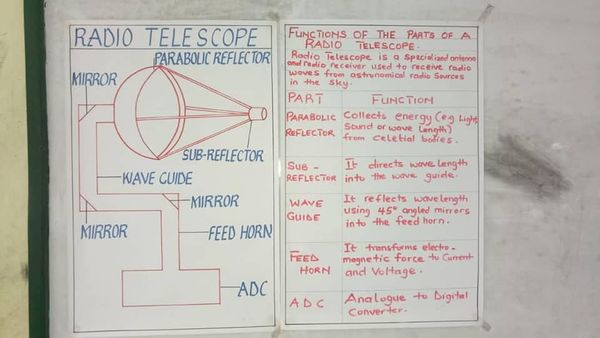 RADIO TELESCOPE
PARABOLIC REFLECTOR
MIRROR
SUB-REFLECTOR
WAVE GUIDE
MIRROR
MIRROR
FEED HORN
ADC
FUNCTIONS OF THE PARTS OF A
RADIO TELESCOPE.
Radio Telescope is a specialized antenna
and radio receiver used to receive radio
waves from astronomial radio Sources
in the sky.
PART FUNCTION
PARABOLIC REFLECTOR
Collects energy (eg Light,
Sound or wave length)
from celetial bodies.
SUB-
REFLECTOR
It directs wave length
into the wave guide.
WAVE
GUIDE
It reflects wavelength
using 45° angled mirrors
into the feed horn.
FEED
HORN
It transforms electro-
magnetic force to Current
and Voltage.
ADC
Analogue to Digital
Converter.